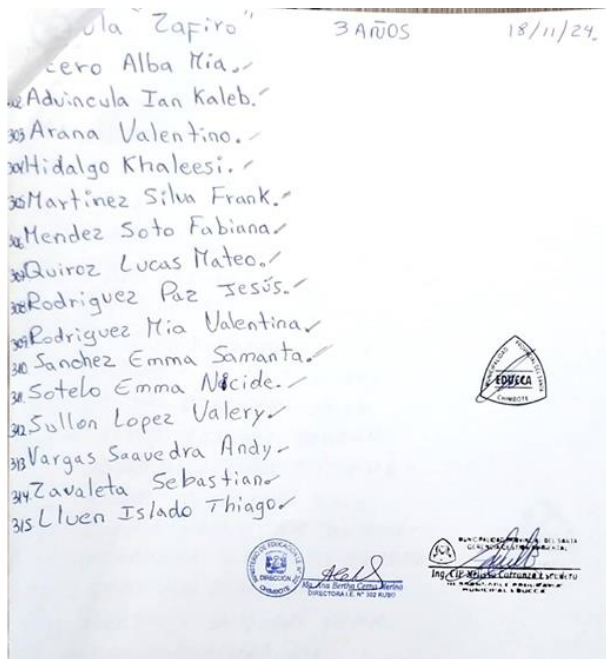 ula "Zafiro" 3 AÑOS 18/11/24.
cero Alba Mia.
302 Advincula Ian Kaleb.
303 Arana Valentino.
304 Hidalgo Khaleesi.
305 Martinez Silva Frank.
306 Mendez Soto Fabiana
307 Quiroz Lucas Mateo.
308 Rodriguez Paz Jesús.
309 Rodriguez Mia Valentina
310 Sanchez Emma Samanta.
311 Sotelo Emma
312 Sullon Lopez Valery
313 Vargas Saavedra Andy
314 Zavaleta Sebastian
315 Lluen Islado Thiago
MUNICIPALIDAD PROVINCIAL DEL SANTA
EDUCCA
CHIMBOTE
MINISTERIO DE EDUCACION I.E. N° 302
DIRECCIÓN
CHIMBOTE
Mg. Ana Bertha Cerna Merino
DIRECTORA I.E. N° 302 RUBO
MUNICIPALIDAD PROVINCIAL DEL SANTA
GERENCIA GESTIÓN AMBIENTAL
Ing. CIP Carranza
MUNICIPAL EDUCCA